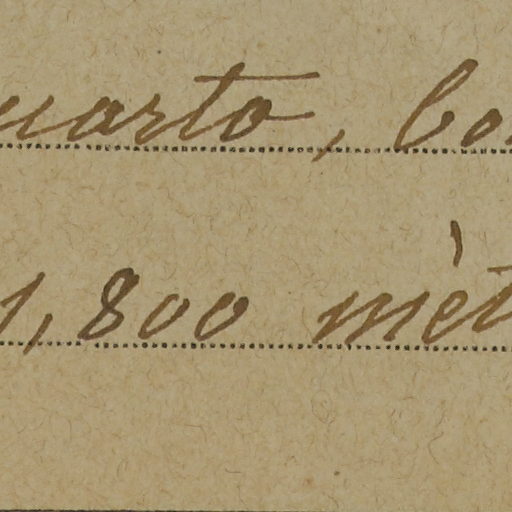 uarto, Co
1,800 mèt